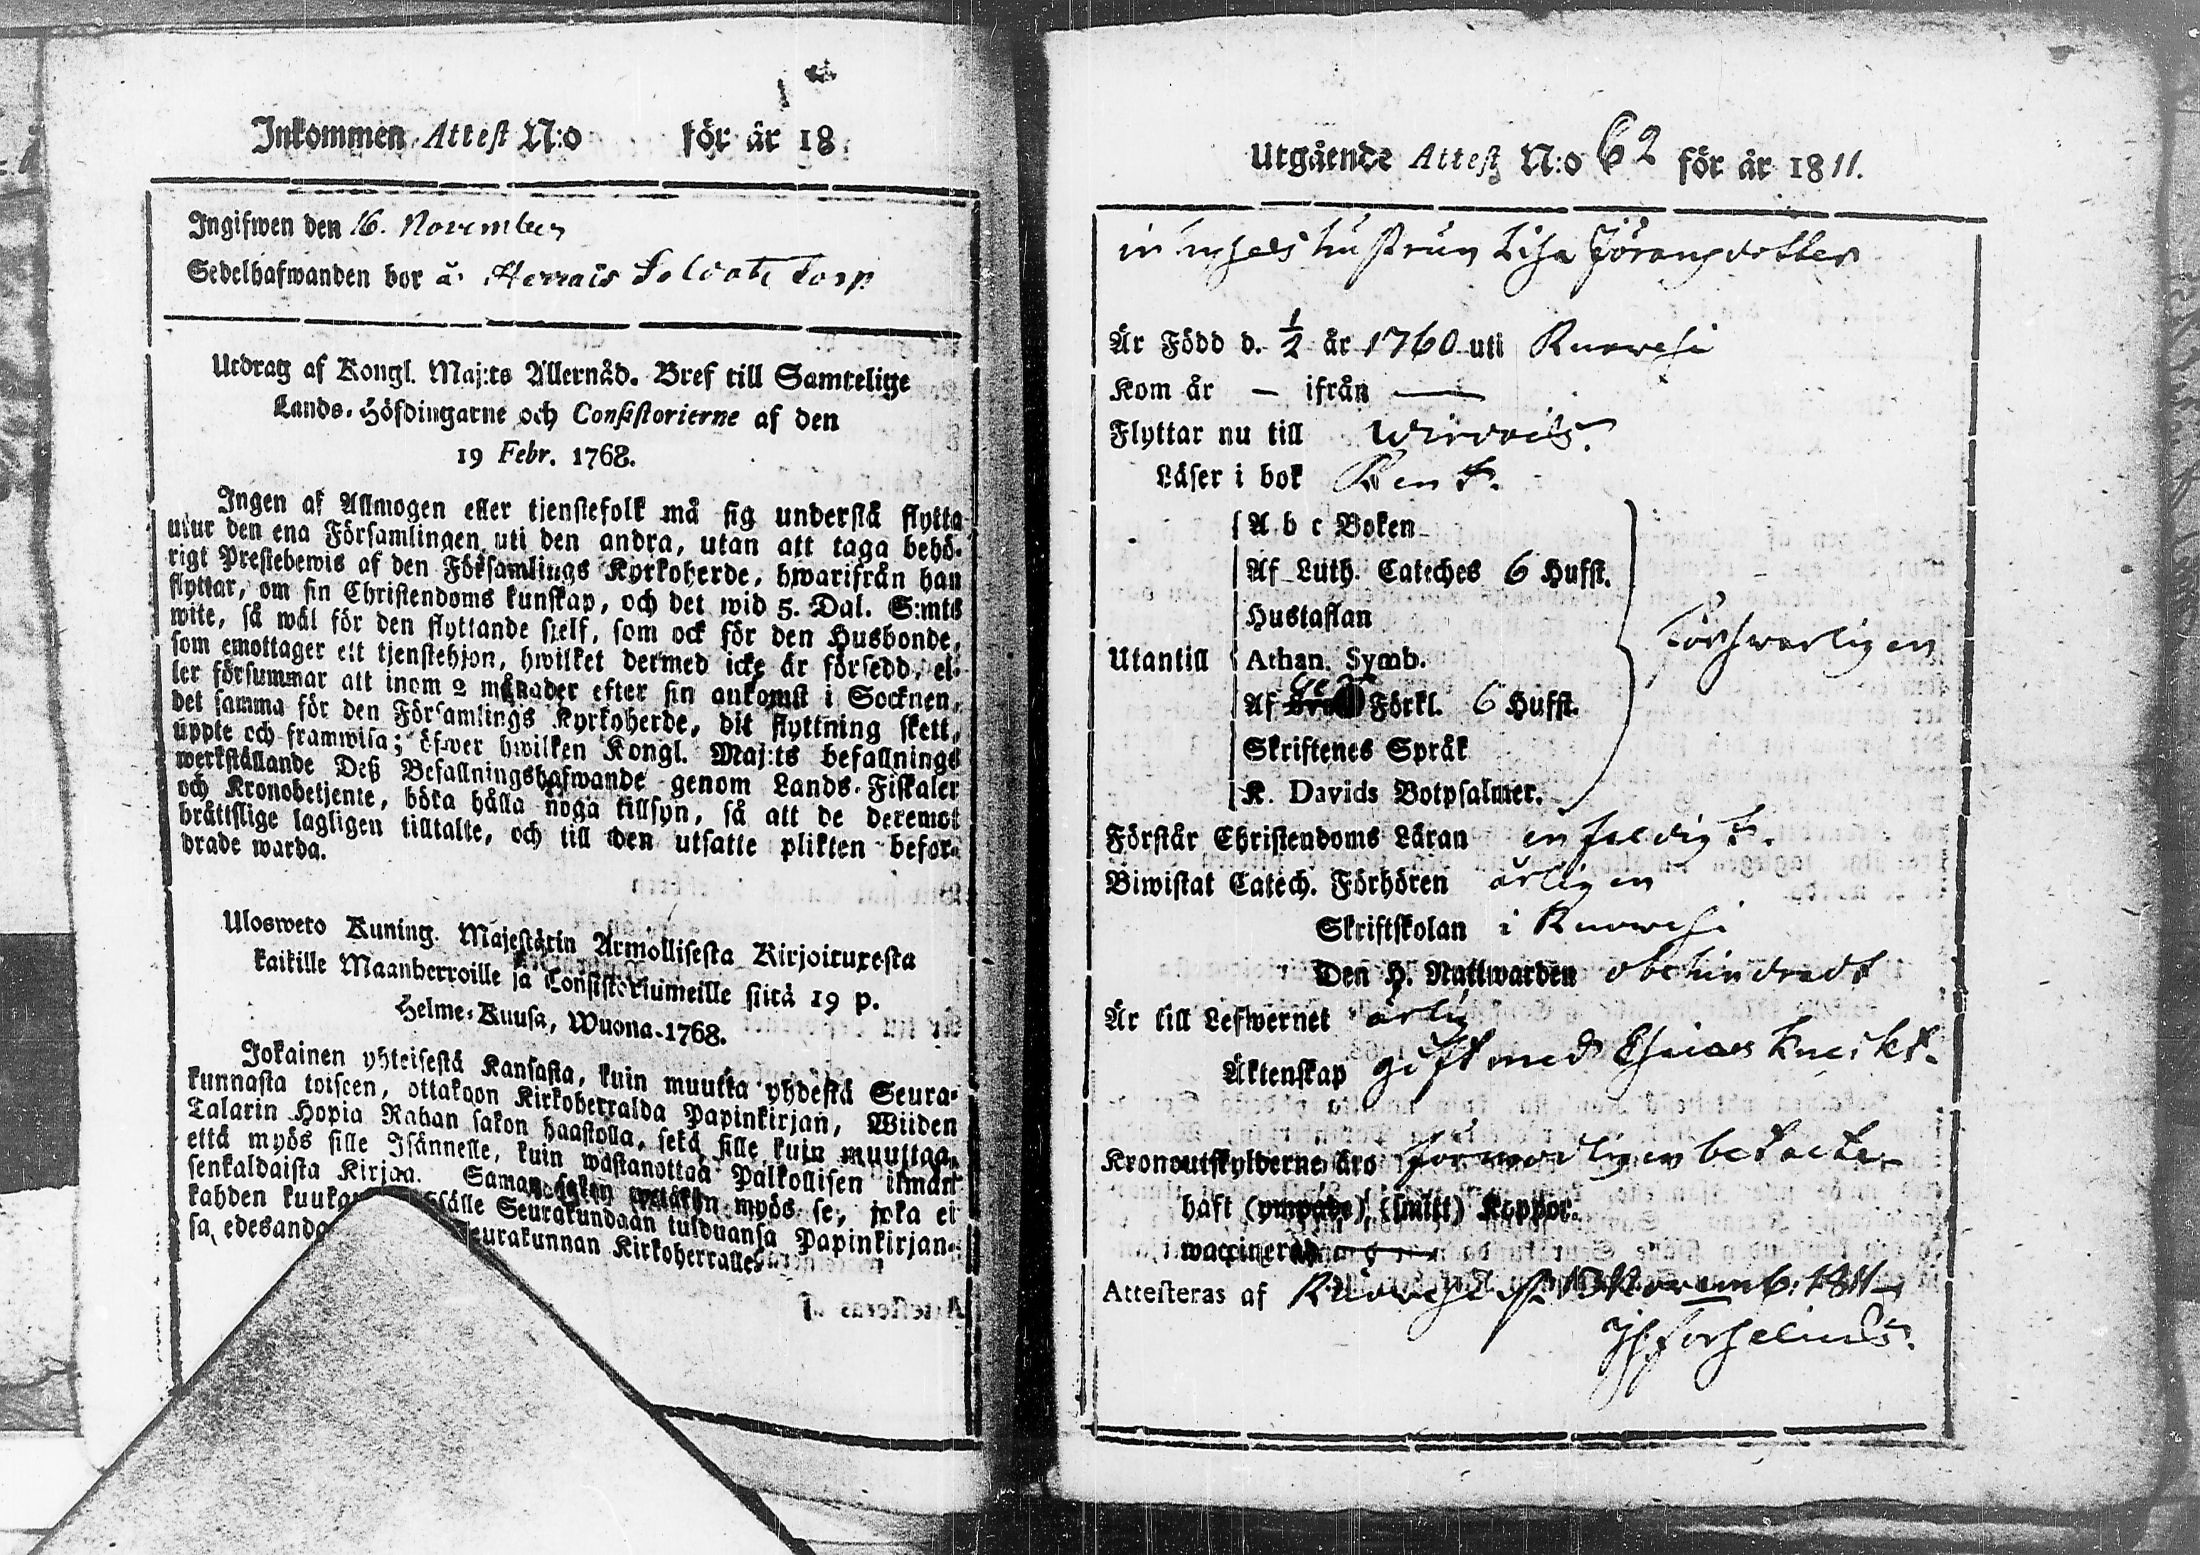 Inkommen Attest N:o för år 18
Ingifwen den 16. November
Sedelhafwanden bor å Soldate Torp
Utdrag af Kongl. Maj:ts Allernåd. Bref till Samtelige
Lands-Höfdingarne och Consistorierne af den
19 Febr. 1768.
Ingen af Allmogen eller tjenstefolk må sig understå flytta
utur den ena Församlingen uti den andra, utan att taga behö-
rigt Prestebewis af den Församlings Kyrkoherde, hwarifrån han
flyttar, om sin Christendoms kunskap, och det wid 5. Dal. S:mts
wite, så wäl för den flyttande sjelf, som ock för den Husbonde,
som emottager ett tjenstehjon, hwilket dermed icke är försedd, el-
ler försummar att inom 2 månader efter sin ankomst i Socknen,
det samma för den Församlings Kyrkoherde, dit flyttning skett,
uppte och framwisa; öfwer hwilken Kongl. Maj:ts befallnings
werkställande Deß Befallningshafwande genom Lands-Fiskaler
och Kronobetjente, böra hålla noga tillsyn, så att de deremot
bråttslige lagligen tilltalte, och till den utsatte plikten befor-
drade warda.
Ulosweto Kuning. Majestätin Armollisesta Kirjoituxesta
kaikille Maanherroille ja Consistoriumeille siitä 19 p.
Helme-Kuusa, Wuona 1768.
Jokainen yhteisestä Kansasta, kuin muutta yhdestä Seura-
kunnasta toiseen, ottakoon Kirkoherralda Papinkirjan, Wiiden
Talarin Hopia Rahan sakon haastolla, sekä sille kuin muuttaa,
että myös sille Isännelle, kuin wastanottaa Palkollisen ilman
senkaldaista Kirjaa. Saman sakon wetäkön myös se, joka ei
kahden kuukau sisälle Seurakundaan tulduansa Papinkirjan-
sa, edesando eurakunnan Kirkoherralle
Utgående Attest N:o 62 för år 1811.
hustrun Lisa Jöransdotter
Är Född d. 1/2 år 1760 uti Ruowesi
Kom år — ifrån —
Flyttar nu till Wirdois.
Läser i bok Rent.
A b c Boken
Af Luth. Cateches 6 Hufst.
Hustaflan
Utantill Athan. Symb. Förswarligen
Af Förkl. 6 Hufst.
Skriftenes Språk
K. Davids Botpsalmer.
Förstår Christendoms Läran enfaldigt.
Biwistat Catech. Förhören årligen
Skriftskolan i Ruowesi
Den H. Nattwarden obehindradt
Är till Lefwernet ärlig
Äktenskap gift med Esaias Kneckt.
Kronoutskylderne äro förswarligen betalte
haft (ympade) (smitt) Koppor.
waccinerad
Attesteras af Ruowesi d. 15 Novemb. 1811
Forselius.